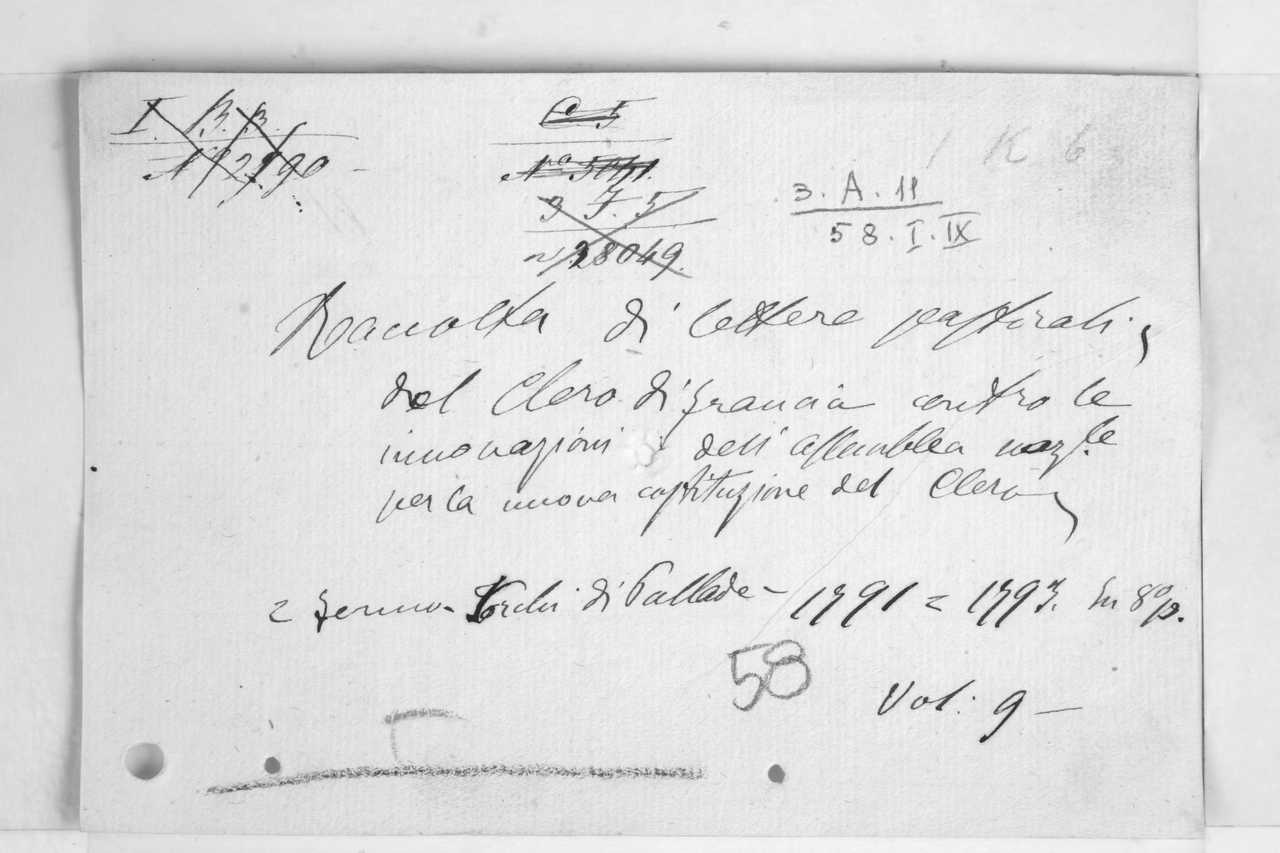 I. B. B.
C 5
1 K 6
Nº 5041.
3. A. 11
3 F. 5
58. I. IX
nº 28049.
Raccolta di lettere pastorali,
del Clero di Francia contro le
innovazioni dell'assemblea nazle
per la nuova costituzione del Clero
= Fermo - Torchi di Pallade - 1791 = 1793. In 8º p.
58
Vol: 9 -